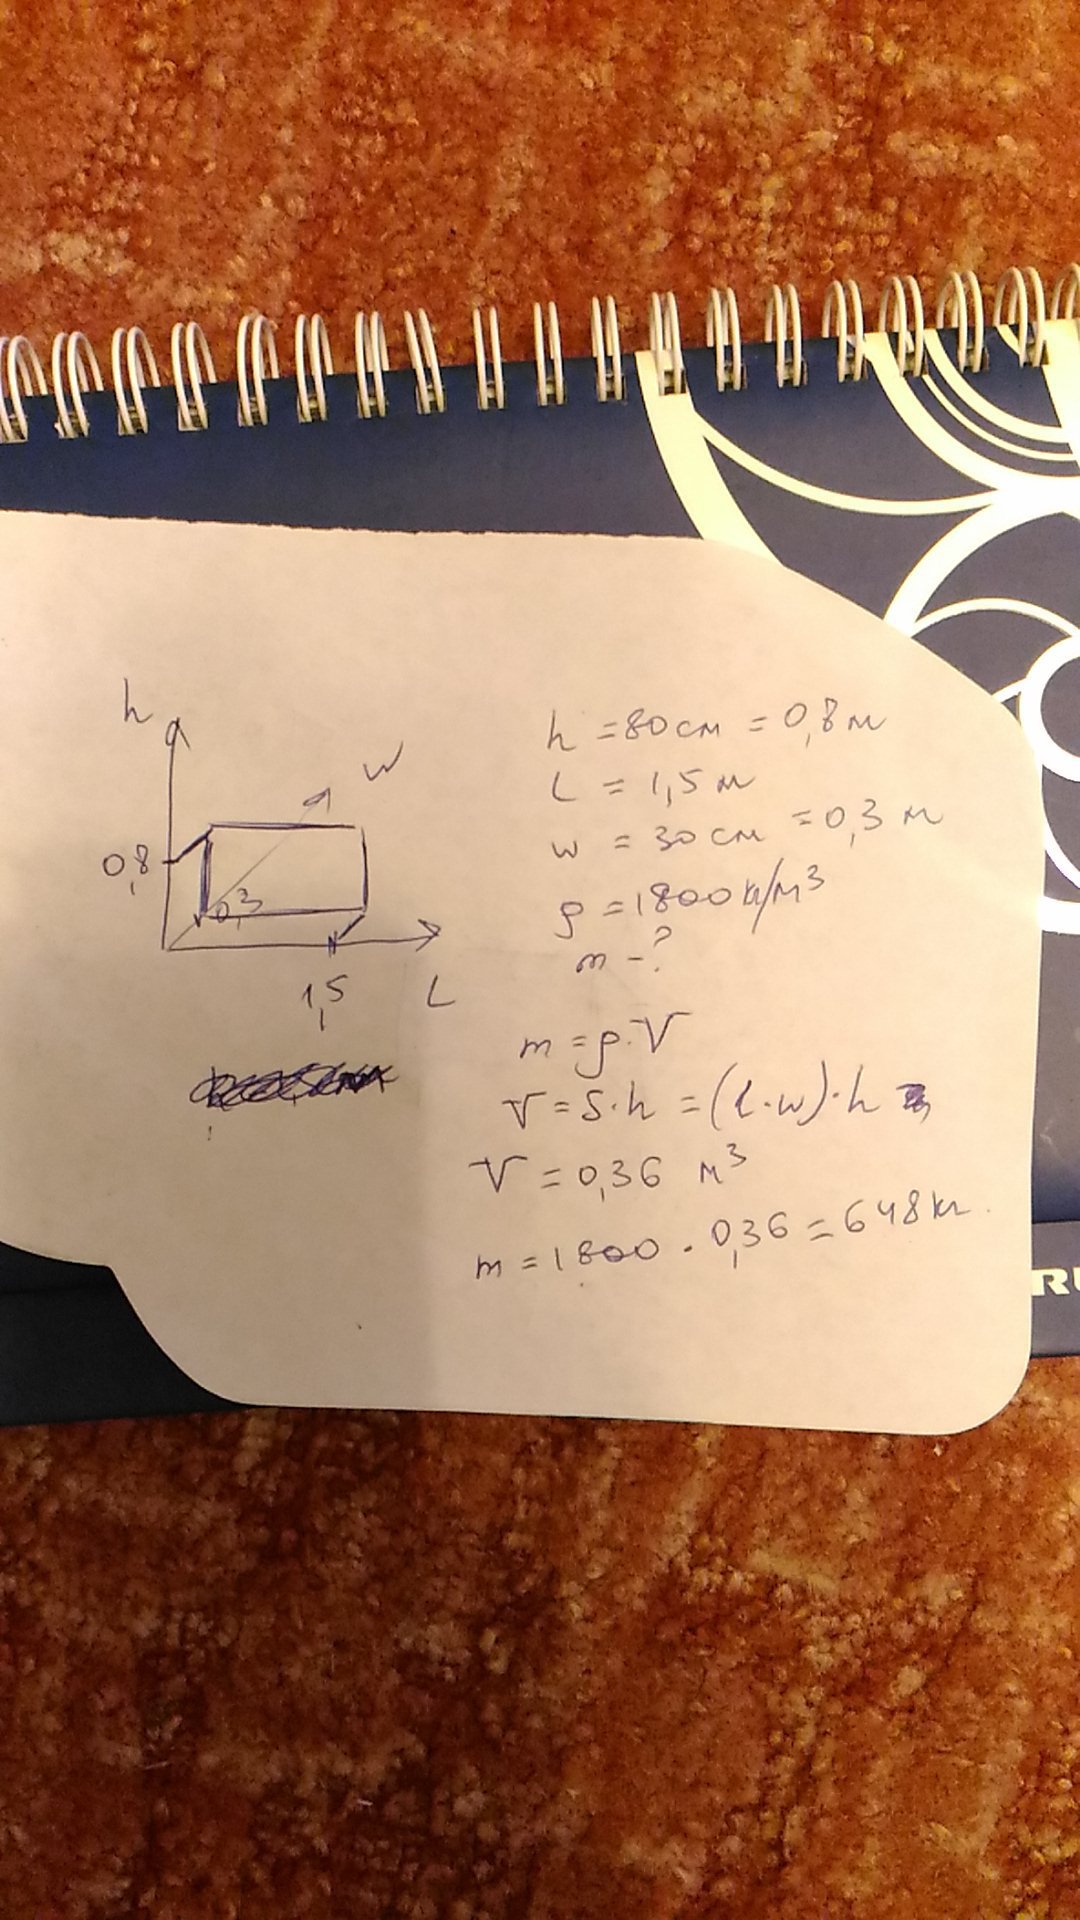 h
W
0,8
0,3
1,5
L
h = 80 см = 0,8 м
L = 1,5 м
w = 30 см = 0,3 м
ρ = 1800 кг/м³
m - ?
m = ρ · V
V = S · h = (l · w) · h
V = 0,36 м³
m = 1800 · 0,36 = 648 кг.
RU